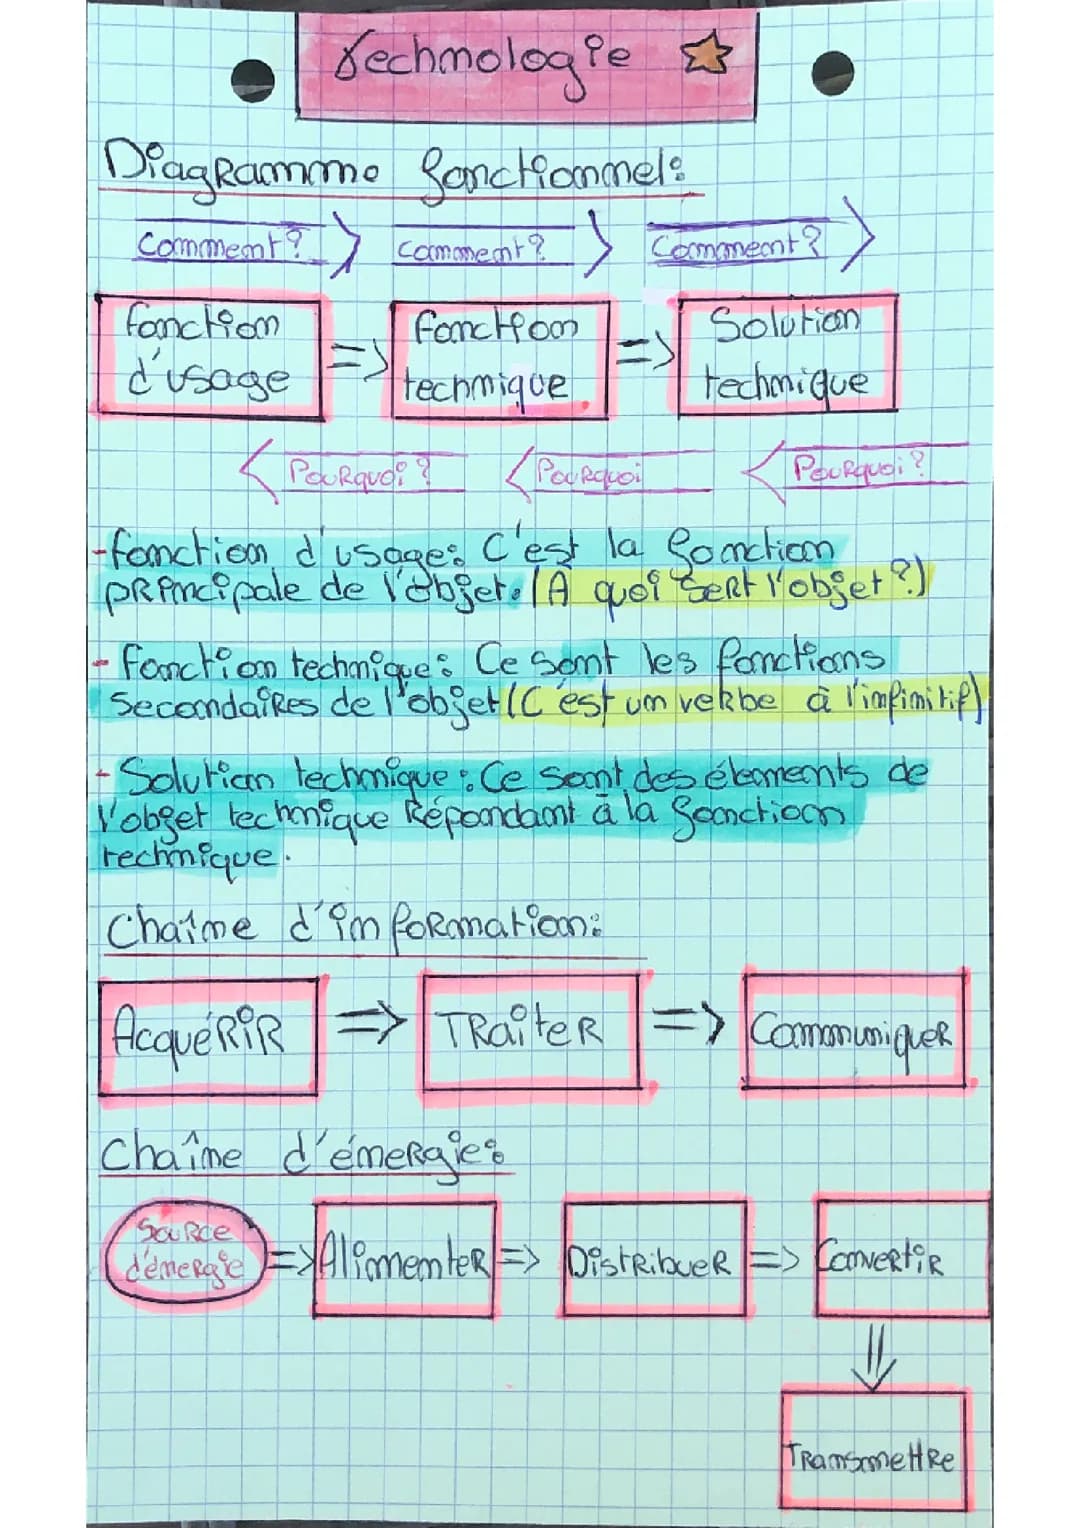 Technologie
Diagramme fonctionnel:
Comment? Comment? Comment?
fonction fonction Solution
d'usage => technique => technique
Pourquoi? Pourquoi Pourquoi?
-fonction d'usage: C'est la fonction
principale de l'objet. (À quoi sert l'objet?)
- fonction technique: Ce sont les fonctions
secondaires de l'objet (C'est un verbe à l'infinitif)
- Solution technique: Ce sont des éléments de
l'objet technique Répondant à la fonction
technique.
Chaîne d'information:
Acquérir => Traiter => Communiquer
Chaîne d'énergie:
Source
d'énergie => Alimenter => Distribuer => Convertir
Transmettre